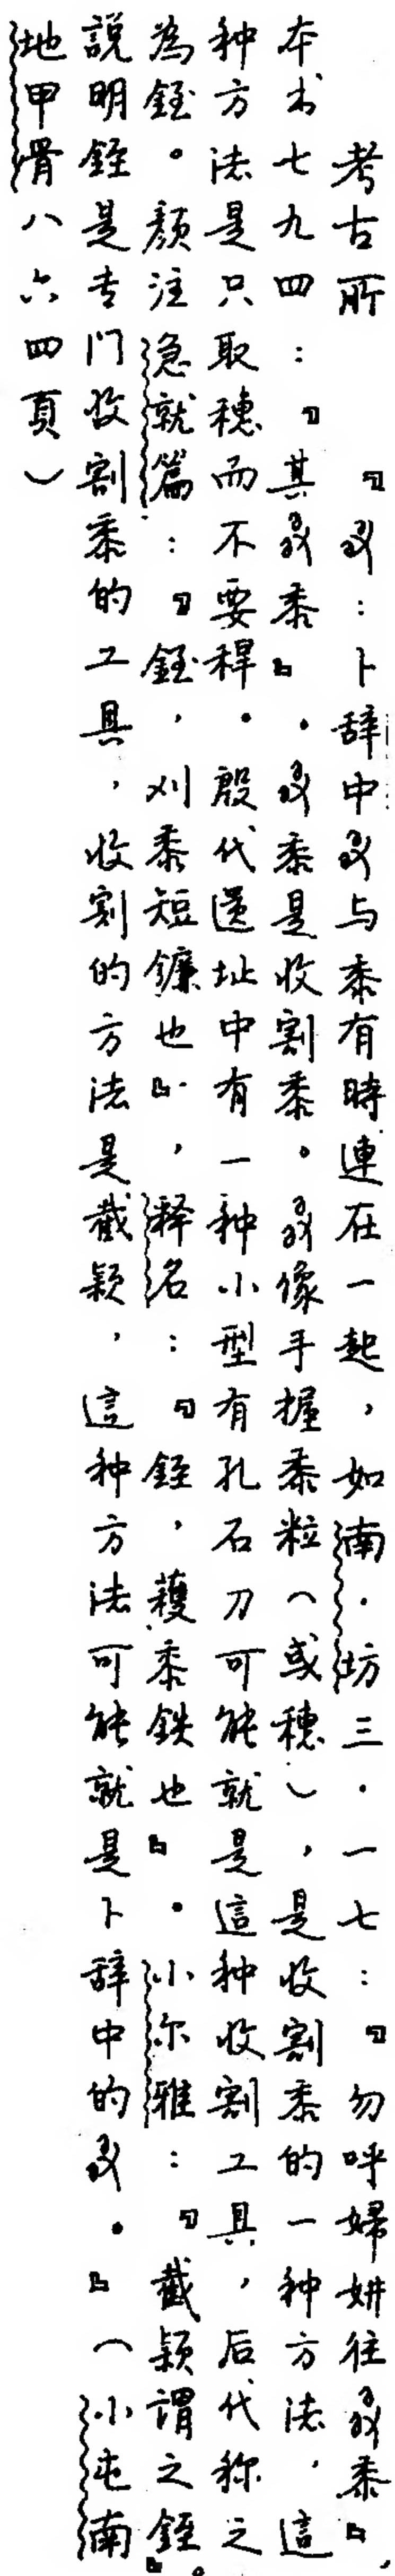 考古所　『：卜辞中与黍有時連在一起，如南·坊三·一七：『勿呼婦妌往黍』，
本书七九四：『其黍』。黍是收割黍。像手握黍粒（或穗），是收割黍的一种方法，這
种方法是只取穗而不要稈。殷代遺址中有一种小型有孔石刀可能就是這种收割工具，后代称之
為銍。顏注急就篇：『銍，刈黍短鐮也』，释名：『銍，穫黍鉄也』。小尔雅：『截颖謂之銍』。
説明銍是专门收割黍的工具，收割的方法是截颖，這种方法可能就是卜辞中的。』（小屯南
地甲骨八六四頁）